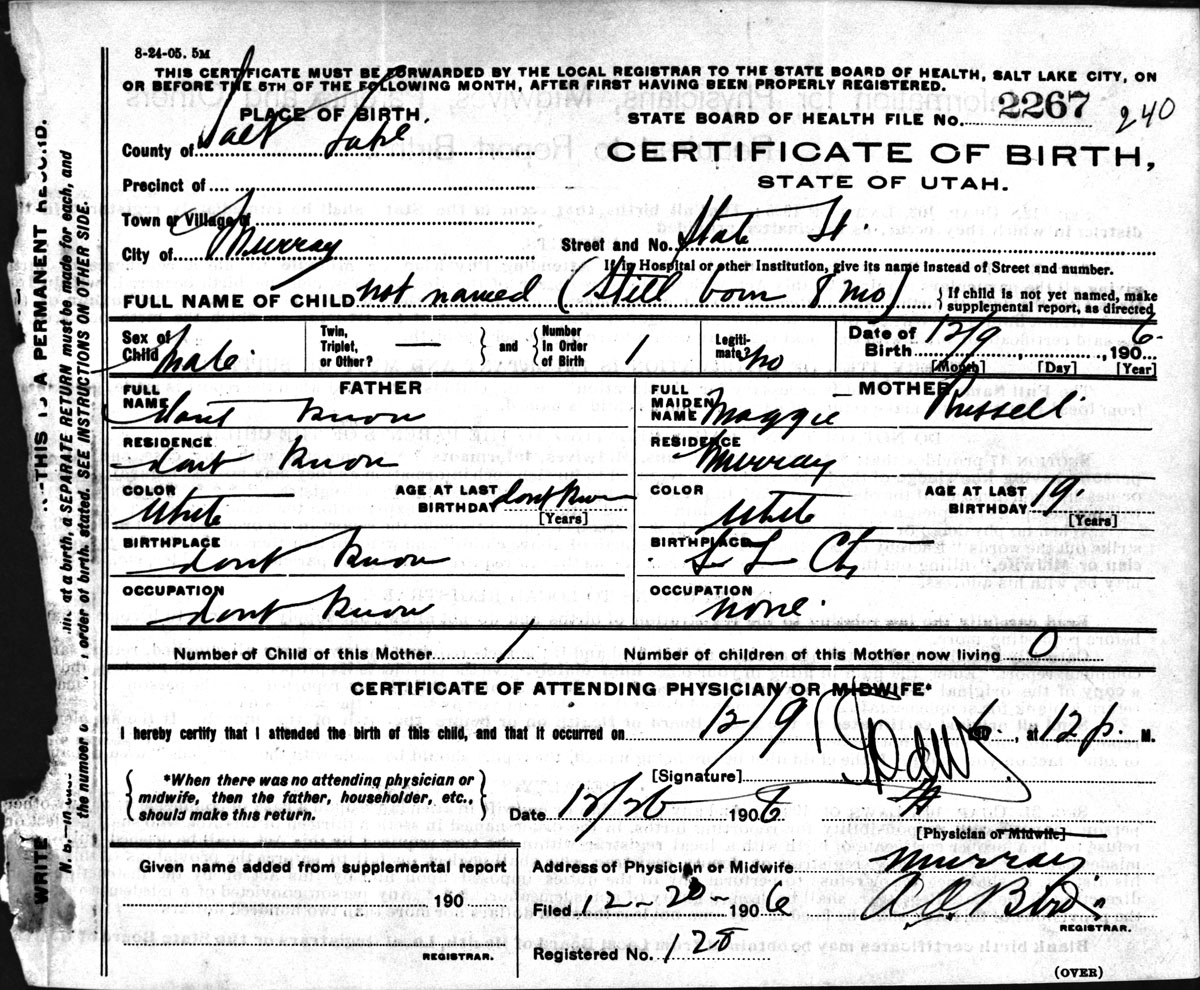 8-24-05. 5M
THIS CERTIFICATE MUST BE FORWARDED BY THE LOCAL REGISTRAR TO THE STATE BOARD OF HEALTH, SALT LAKE CITY, ON
OR BEFORE THE 5TH OF THE FOLLOWING MONTH, AFTER FIRST HAVING BEEN PROPERLY REGISTERED.
PLACE OF BIRTH,
STATE BOARD OF HEALTH FILE No. 2267 240
County of Salt Lake
CERTIFICATE OF BIRTH,
STATE OF UTAH.
Precinct of
Town or Village of
City of Murray
Street and No. State St.
If in Hospital or other Institution, give its name instead of Street and number.
FULL NAME OF CHILD not named (Still born 8 mo) } If child is not yet named, make
supplemental report, as directed
Sex of Child Male
Twin, Triplet, or Other? — } and { Number In Order of Birth 1
Legiti-mate? no
Date of Birth 12/9, 1906
[Month] [Day] [Year]
FATHER
FULL NAME dont know
RESIDENCE dont know
COLOR White AGE AT LAST BIRTHDAY dont know [Years]
BIRTHPLACE dont know
OCCUPATION dont know
MOTHER
FULL MAIDEN NAME Maggie Russell
RESIDENCE Murray
COLOR White AGE AT LAST BIRTHDAY 19 [Years]
BIRTHPLACE S L Cty
OCCUPATION none.
Number of Child of this Mother 1
Number of children of this Mother now living 0
CERTIFICATE OF ATTENDING PHYSICIAN OR MIDWIFE*
I hereby certify that I attended the birth of this child, and that it occurred on 12/9 190 , at 12 p. M.
{ *When there was no attending physician or
midwife, then the father, householder, etc.,
should make this return. }
[Signature]
Date 12/26 1906
[Physician or Midwife]
Given name added from supplemental report
190
REGISTRAR.
Address of Physician or Midwife Murray
Filed 12-28-1906
REGISTRAR.
Registered No. 128
(OVER)
WRITE
THIS IS A PERMANENT RECORD.
N. B.—In case
at a birth, a SEPARATE RETURN must be made for each, and
the number
order of birth, stated. SEE INSTRUCTIONS ON OTHER SIDE.